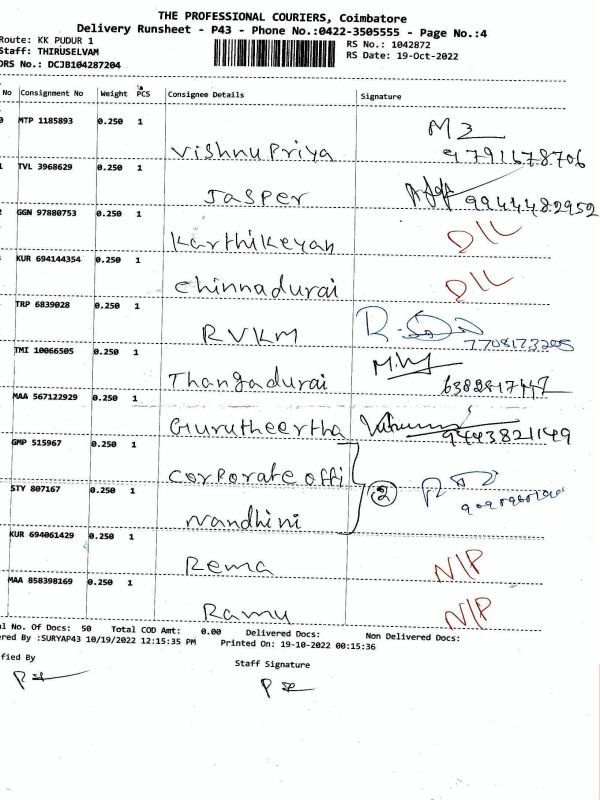 THE PROFESSIONAL COURIERS, Coimbatore
Delivery Runsheet - P43 - Phone No.:0422-3505555 - Page No.:4
Route: KK PUDUR 1
RS No.: 1042872
Staff: THIRUSELVAM
RS Date: 19-Oct-2022
DRS No.: DCJB104287204
No Consignment No Weight PCS Consignee Details Signature
MTP 1185893 0.250 1
Vishnu Priya 9791678706
TVL 3968629 0.250 1
Jasper 9944482952
GGN 97880753 0.250 1
Karthikeyan D/L
KUR 694144354 0.250 1
Chinnadurai D/L
TRP 6839028 0.250 1
RVKM 7708173205
TMI 10066505 0.250 1
Thangadurai 6382817447
MAA 567122929 0.250 1
Gurutheertha 9443821149
GMP 515967 0.250 1
Corporate offi
②
STY 807167 0.250 1
Nandhini
KUR 694061429 0.250 1
Rema N/P
MAA 858398169 0.250 1
Ramu N/P
l No. Of Docs: 50 Total COD Amt: 0.00 Delivered Docs: Non Delivered Docs:
ered By :SURYAP43 10/19/2022 12:15:35 PM Printed On: 19-10-2022 00:15:36
fied By Staff Signature